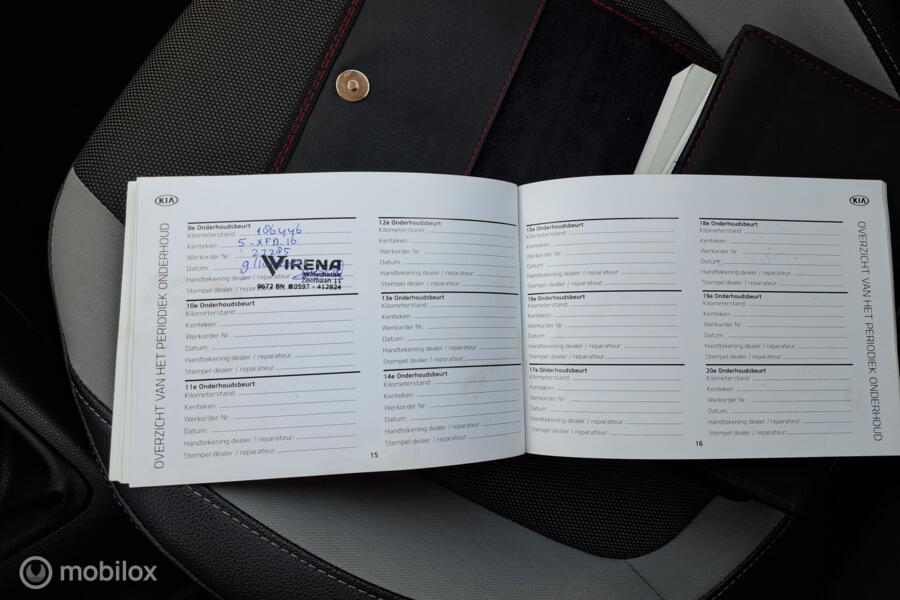 KIA
OVERZICHT VAN HET PERIODIEK ONDERHOUD
9e Onderhoudsbeurt
Kilometerstand: 106446
Kenteken: 5-XFB.16
Werkorder Nr: 27285
Datum:
Handtekening dealer / reparateur:
Stempel dealer / reparateur:
VIRENA
Winschoten
Zeefbaan 11
9672 BN 0597 - 412824
10e Onderhoudsbeurt
Kilometerstand:
Kenteken:
Werkorder Nr:
Datum:
Handtekening dealer / reparateur:
Stempel dealer / reparateur:
11e Onderhoudsbeurt
Kilometerstand:
Kenteken:
Werkorder Nr:
Datum:
Handtekening dealer / reparateur:
Stempel dealer / reparateur:
12e Onderhoudsbeurt
Kilometerstand:
Kenteken:
Werkorder Nr:
Datum:
Handtekening dealer / reparateur:
Stempel dealer / reparateur:
13e Onderhoudsbeurt
Kilometerstand:
Kenteken:
Werkorder Nr:
Datum:
Handtekening dealer / reparateur:
Stempel dealer / reparateur:
14e Onderhoudsbeurt
Kilometerstand:
Kenteken:
Werkorder Nr:
Datum:
Handtekening dealer / reparateur:
Stempel dealer / reparateur:
15
15e Onderhoudsbeurt
Kilometerstand:
Kenteken:
Werkorder Nr:
Datum:
Handtekening dealer / reparateur:
Stempel dealer / reparateur:
16e Onderhoudsbeurt
Kilometerstand:
Kenteken:
Werkorder Nr:
Datum:
Handtekening dealer / reparateur:
Stempel dealer / reparateur:
17e Onderhoudsbeurt
Kilometerstand:
Kenteken:
Werkorder Nr:
Datum:
Handtekening dealer / reparateur:
Stempel dealer / reparateur:
18e Onderhoudsbeurt
Kilometerstand:
Kenteken:
Werkorder Nr:
Datum:
Handtekening dealer / reparateur:
Stempel dealer / reparateur:
19e Onderhoudsbeurt
Kilometerstand:
Kenteken:
Werkorder Nr:
Datum:
Handtekening dealer / reparateur:
Stempel dealer / reparateur:
20e Onderhoudsbeurt
Kilometerstand:
Kenteken:
Werkorder Nr:
Datum:
Handtekening dealer / reparateur:
Stempel dealer / reparateur:
16
KIA
OVERZICHT VAN HET PERIODIEK ONDERHOUD
mobilox